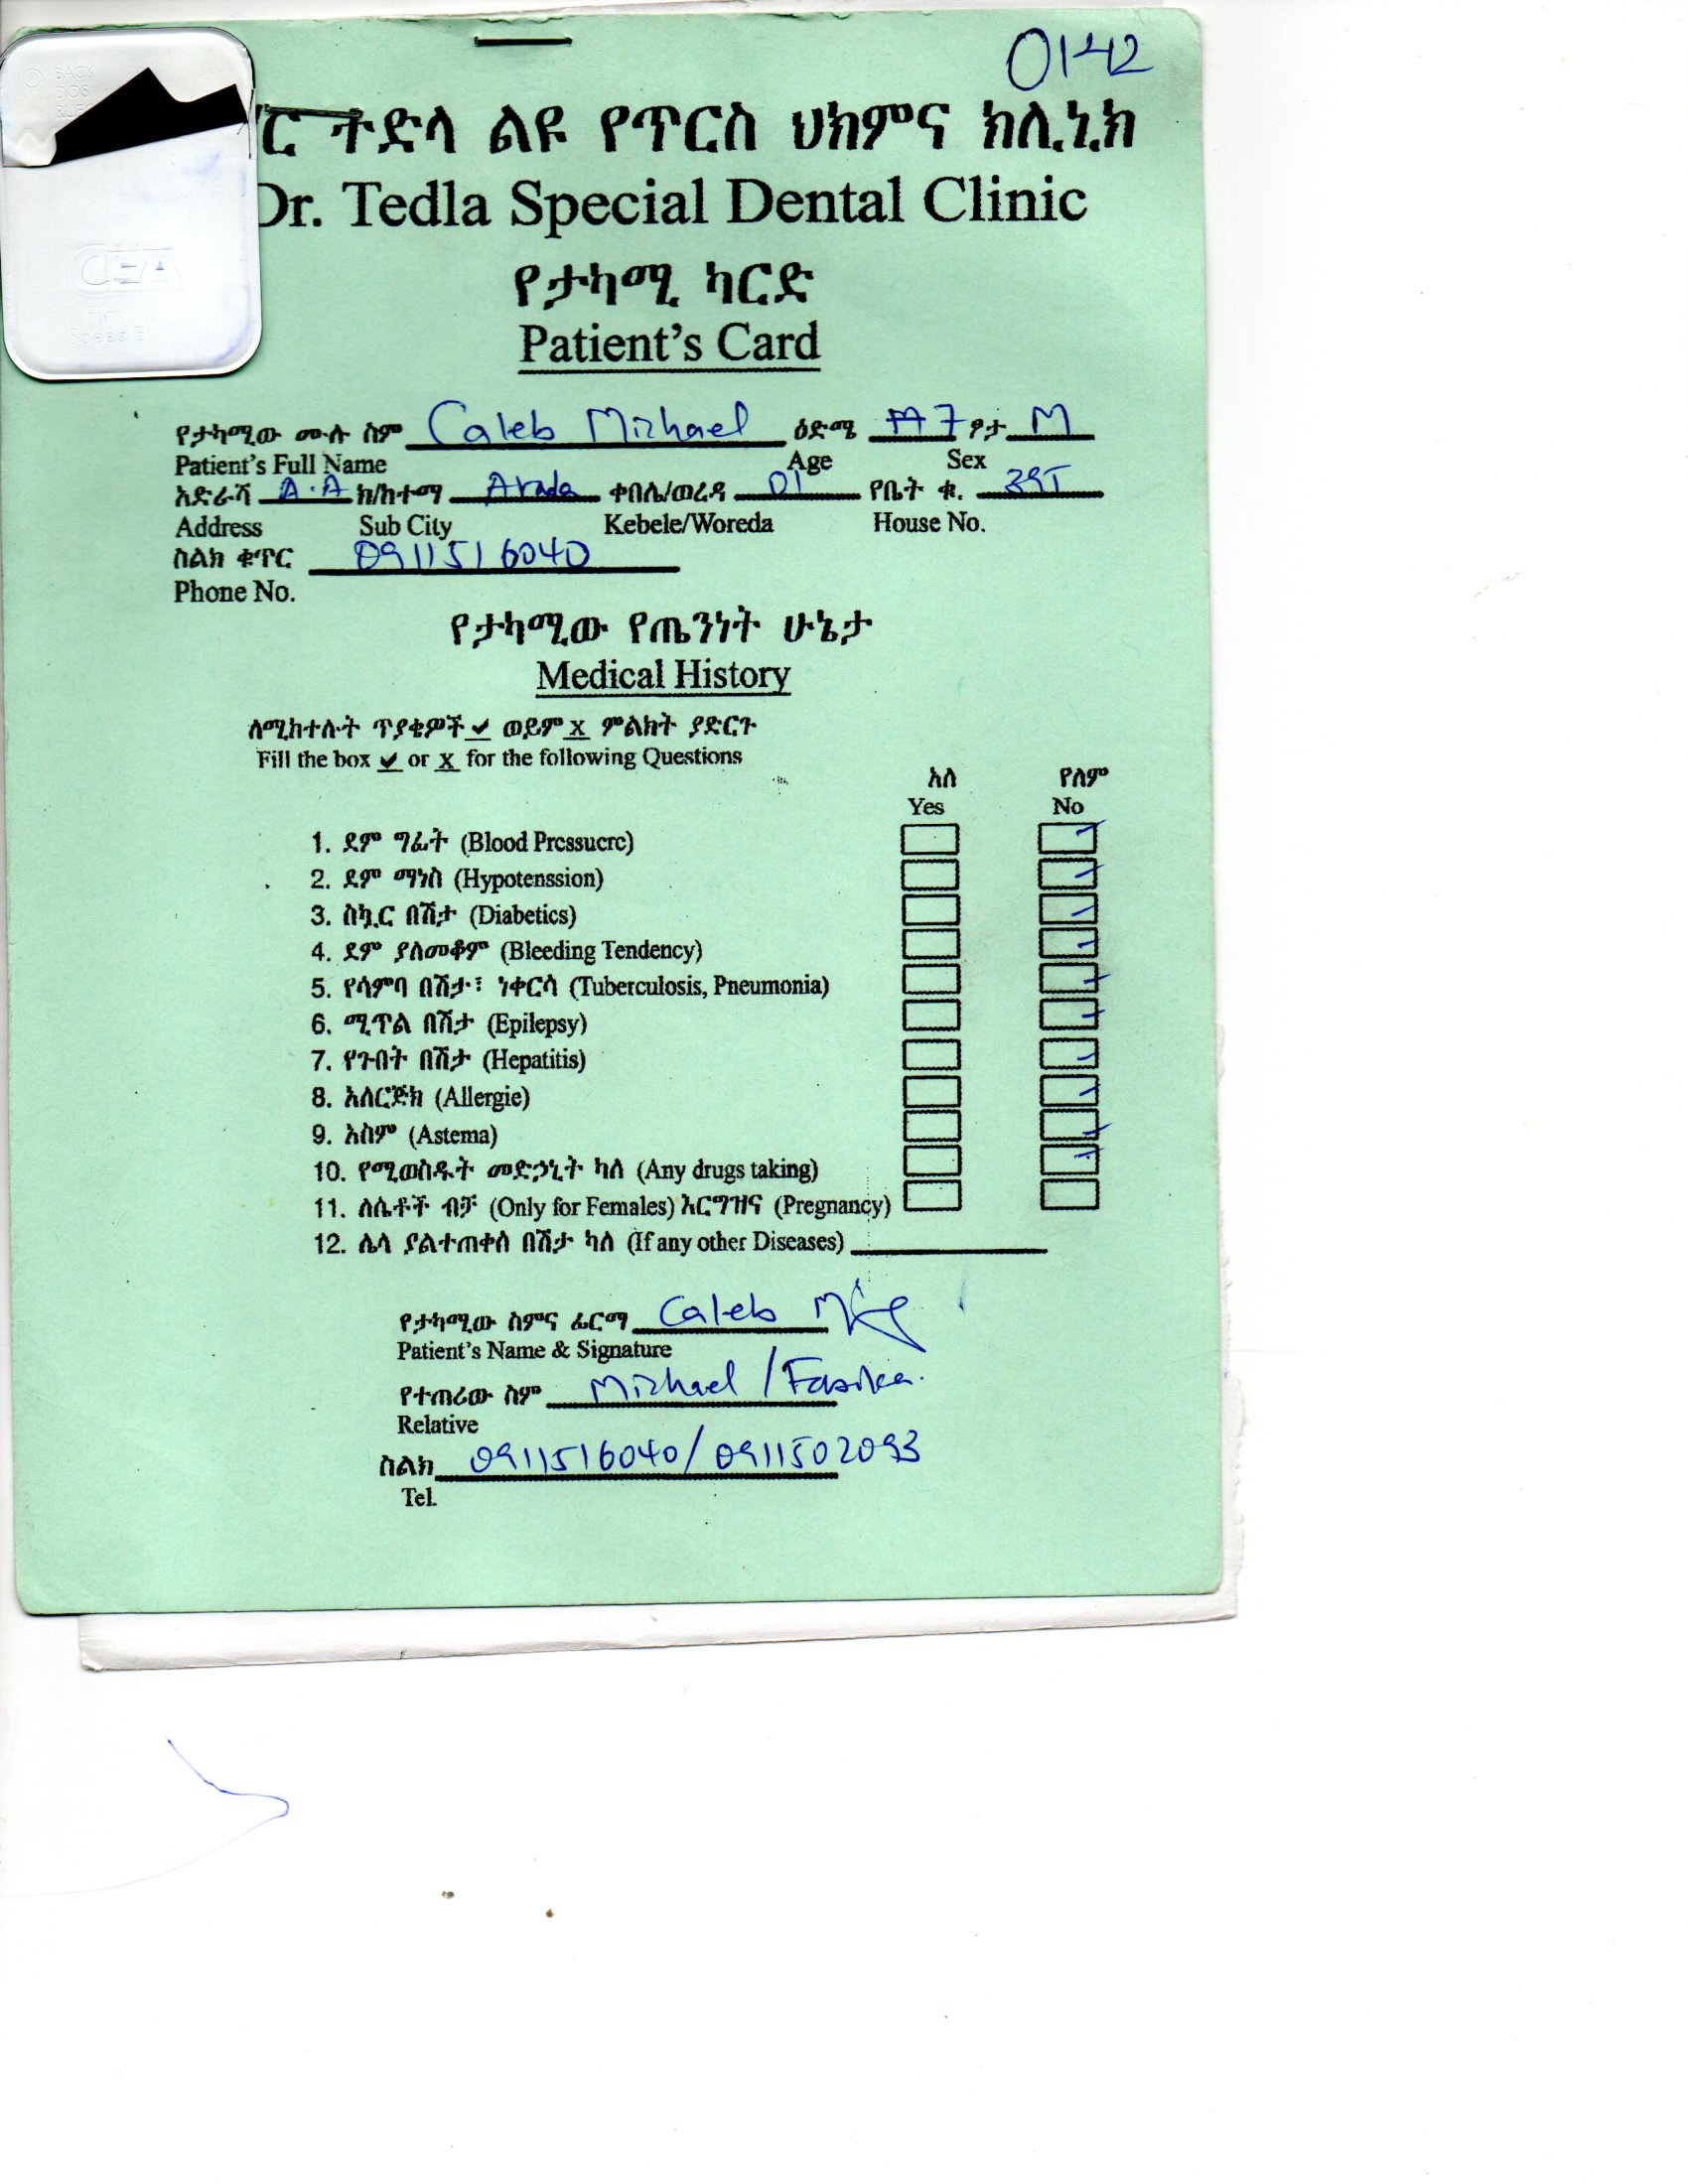 0142
ር ተድላ ልዩ የጥርስ ህክምና ክሊኒክ
Dr. Tedla Special Dental Clinic
የታካሚ ካርድ
Patient's Card
የታካሚው ሙሉ ስም Caleb Michael ዕድሜ 7 ፆታ M
Patient's Full Name Age Sex
አድራሻ A.A ክ/ከተማ Arada ቀበሌ/ወረዳ 01 የቤት ቁ.
Address Sub City Kebele/Woreda House No.
ስልክ ቁጥር 0911516040
Phone No.
የታካሚው የጤንነት ሁኔታ
Medical History
ለሚከተሉት ጥያቄዎች ✔ ወይም x ምልክት ያድርጉ
Fill the box ✔ or x for the following Questions
አለ የለም
Yes No
1. ደም ግፊት (Blood Pressuere)
2. ደም ማነስ (Hypotenssion)
3. ስኳር በሽታ (Diabetics)
4. ደም ያለመቆም (Bleeding Tendency)
5. የሳምባ በሽታ፣ ነቀርሳ (Tuberculosis, Pneumonia)
6. ሚጥል በሽታ (Epilepsy)
7. የጉበት በሽታ (Hepatitis)
8. አለርጅክ (Allergie)
9. አስም (Astema)
10. የሚወስዱት መድኃኒት ካለ (Any drugs taking)
11. ለሴቶች ብቻ (Only for Females) እርግዝና (Pregnancy)
12. ሌላ ያልተጠቀሰ በሽታ ካለ (If any other Diseases)
የታካሚው ስምና ፊርማ Caleb
Patient's Name & Signature
የተጠሪው ስም Michael / Fasika.
Relative
ስልክ 0911516040/0911502093
Tel.